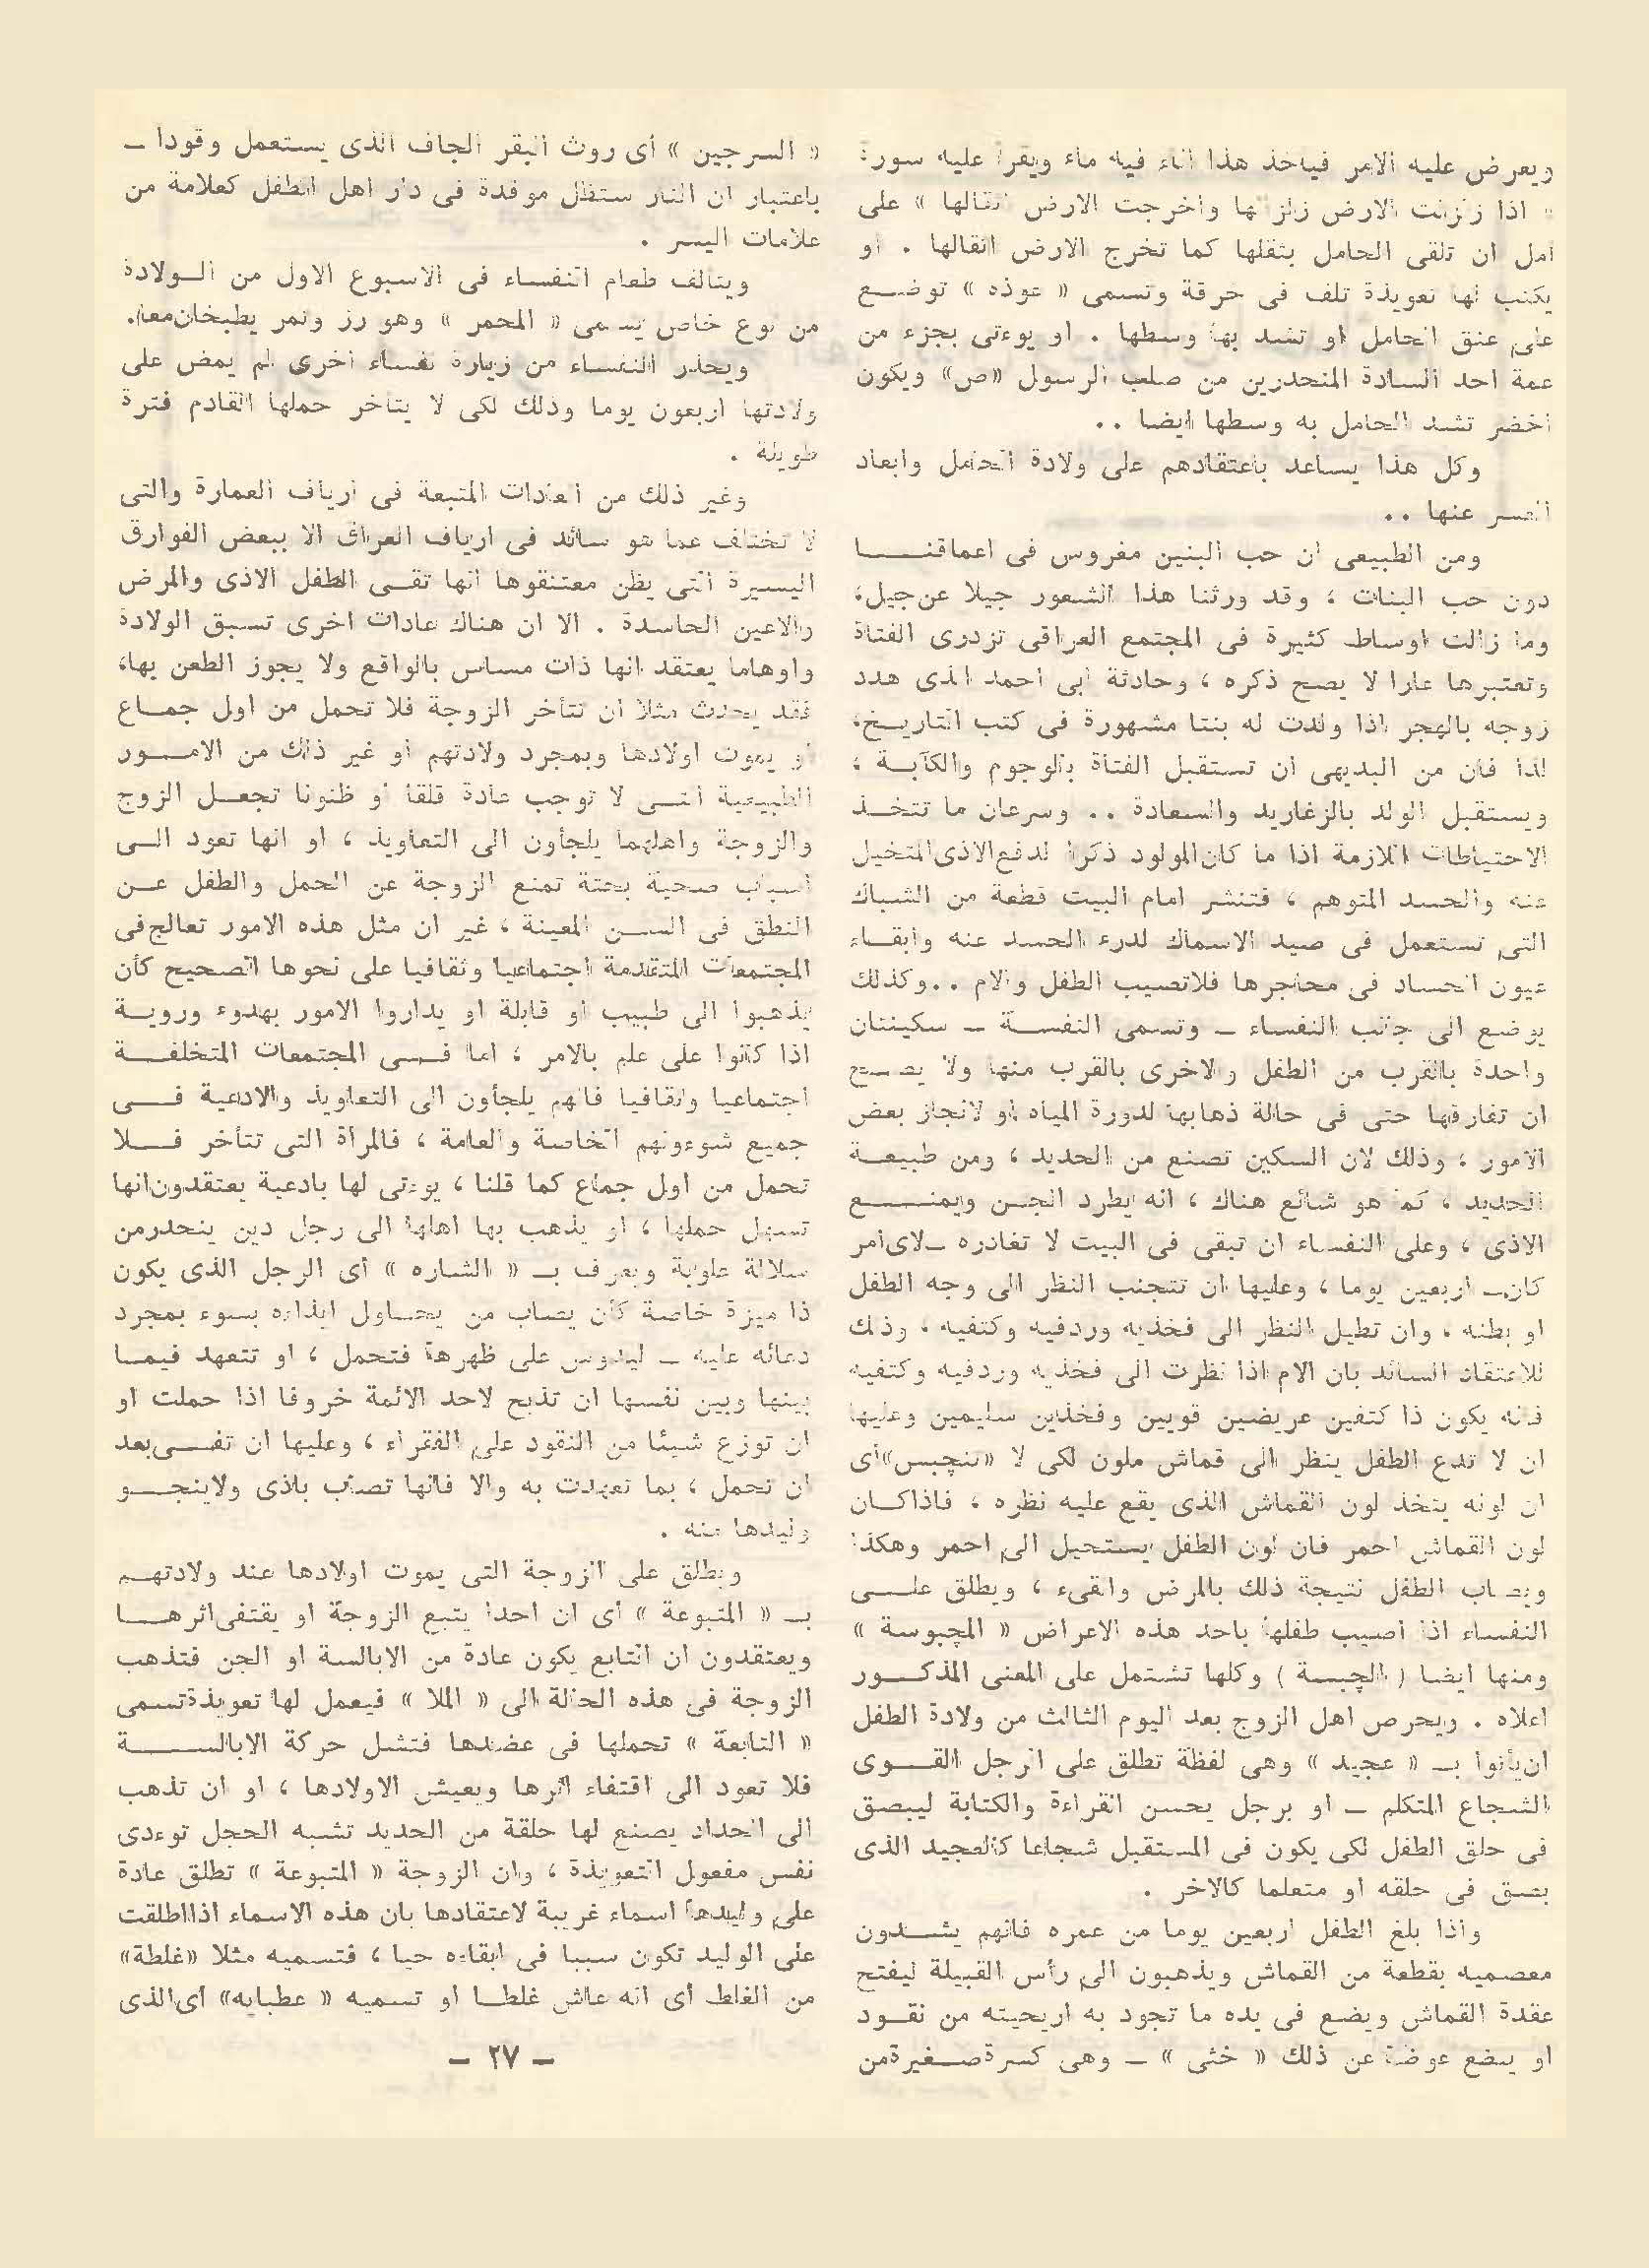 ويعرض عليه الامر فياخذ هذا اناء فيه ماء ويقرأ عليه سورة
« اذا زلزلت الارض زلزالها واخرجت الارض اثقالها » على
امل ان تلقى الحامل بثقلها كما تخرج الارض اثقالها . او
يكتب لها تعويذة تلف فى خرقة وتسمى « عوذه » توضع
على عنق الحامل او تشد بها وسطها . او يوءتى بجزء من
عمة احد السادة المنحدرين من صلب الرسول «ص» ويكون
اخضر تشد الحامل به وسطها ايضا ..
وكل هذا يساعد باعتقادهم على ولادة الحامل وابعاد
العسر عنها ..
ومن الطبيعى ان حب البنين مغروس فى اعماقنا
دون حب البنات ، وقد ورثنا هذا الشعور جيلا عن جيل،
وما زالت اوساط كثيرة فى المجتمع العراقى تزدرى الفتاة
وتعتبرها عارا لا يصح ذكره ، وحادثة ابى احمد الذى هدد
زوجه بالهجر اذا ولدت له بنتا مشهورة فى كتب التاريخ،
لذا فان من البديهى ان تستقبل الفتاة بالوجوم والكآبة ،
ويستقبل الولد بالزغاريد والسعادة .. وسرعان ما تتخذ
الاحتياطات اللازمة اذا ما كان المولود ذكرا لدفع الاذى المتخيل
عنه والحسد المتوهم ، فتنشر امام البيت قطعة من الشباك
التى تستعمل فى صيد الاسماك لدرء الحسد عنه وابقاء
عيون الحساد فى محاجرها فلاتصيب الطفل والام ..وكذلك
يوضع الى جانب النفساء – وتسمى النفسة – سكينتان
واحدة بالقرب من الطفل والاخرى بالقرب منها ولا يصح
ان تفارقها حتى فى حالة ذهابها لدورة المياه او لانجاز بعض
الامور ، وذلك لان السكين تصنع من الحديد ، ومن طبيعة
الحديد ، كما هو شائع هناك ، انه يطرد الجن ويمنع
الاذى ، وعلى النفساء ان تبقى فى البيت لا تغادره –لاى امر
كان– اربعين يوما ، وعليها ان تتجنب النظر الى وجه الطفل
او بطنه ، وان تطيل النظر الى فخذيه وردفيه وكتفيه ، وذلك
للاعتقاد السائد بان الام اذا نظرت الى فخذيه وردفيه وكتفيه
فانه يكون ذا كتفين عريضين قويين وفخذين سليمين وعليها
ان لا تدع الطفل ينظر الى قماش ملون لكى لا «تنچبس»أى
ان لونه يتخذ لون القماش الذى يقع عليه نظره ، فاذاكان
لون القماش احمر فان لون الطفل يستحيل الى احمر وهكذا
ويصاب الطفل نتيجة ذلك بالمرض والقىء ، ويطلق على
النفساء اذا اصيب طفلها باحد هذه الاعراض « المچبوسة »
ومنها ايضا ( الچبسة ) وكلها تشتمل على المعنى المذكور
اعلاه . ويحرص اهل الزوج بعد اليوم الثالث من ولادة الطفل
ان يأتوا بـ « عجيد » وهى لفظة تطلق على الرجل القوى
الشجاع المتكلم – او برجل يحسن القراءة والكتابة ليبصق
فى حلق الطفل لكى يكون فى المستقبل شجاعا كالعجيد الذى
بصق فى حلقه او متعلما كالاخر .
واذا بلغ الطفل اربعين يوما من عمره فانهم يشدون
معصميه بقطعة من القماش ويذهبون الى رأس القبيلة ليفتح
عقدة القماش ويضع فى يده ما تجود به اريحيته من نقود
او يضع عوضا عن ذلك « خثى » – وهى كسرة صغيرة من
« السرجين » أى روث البقر الجاف الذى يستعمل وقودا –
باعتبار ان النار ستظل موقدة فى دار اهل الطفل كعلامة من
علامات اليسر .
ويتالف طعام النفساء فى الاسبوع الاول من الولادة
من نوع خاص يسمى « المحمر » وهو رز وتمر يطبخان معا.
ويحذر النفساء من زيارة نفساء اخرى لم يمض على
ولادتها اربعون يوما وذلك لكى لا يتاخر حملها القادم فترة
طويلة .
وغير ذلك من العادات المتبعة فى ارياف العمارة والتى
لا تختلف عما هو سائد فى ارياف العراق الا ببعض الفوارق
اليسيرة التى يظن معتنقوها انها تقى الطفل الاذى والمرض
والاعين الحاسدة . الا ان هناك عادات اخرى تسبق الولادة
واوهاما يعتقد انها ذات مساس بالواقع ولا يجوز الطعن بها،
فقد يحدث مثلا ان تتأخر الزوجة فلا تحمل من اول جماع
او يموت اولادها وبمجرد ولادتهم او غير ذلك من الامور
الطبيعية التى لا توجب عادة قلقا او ظنونا تجعل الزوج
والزوجة واهلهما يلجأون الى التعاويذ ، او انها تعود الى
اسباب صحية بحتة تمنع الزوجة عن الحمل والطفل عن
النطق فى السن المعينة ، غير ان مثل هذه الامور تعالج فى
المجتمعات المتقدمة اجتماعيا وثقافيا على نحوها الصحيح كأن
يذهبوا الى طبيب او قابلة او يداروا الامور بهدوء وروية
اذا كانوا على علم بالامر ، اما فى المجتمعات المتخلفة
اجتماعيا وثقافيا فانهم يلجأون الى التعاويذ والادعية فى
جميع شوءونهم الخاصة والعامة ، فالمرأة التى تتأخر فلا
تحمل من اول جماع كما قلنا ، يوءتى لها بادعية يعتقدون انها
تسهل حملها ، او يذهب بها اهلها الى رجل دين ينحدرمن
سلالة علوية ويعرف بـ « الشاره » أى الرجل الذى يكون
ذا ميزة خاصة كأن يصاب من يحاول ايذاءه بسوء بمجرد
دعائه عليه – ليدوس على ظهرها فتحمل ، او تتعهد فيما
بينها وبين نفسها ان تذبح لاحد الائمة خروفا اذا حملت او
ان توزع شيئا من النقود على الفقراء ، وعليها ان تفى بعد
ان تحمل ، بما تعهدت به والا فانها تصاب باذى ولاينجو
وليدها منه .
ويطلق على الزوجة التى يموت اولادها عند ولادتهم
بـ « المتبوعة » أى ان احدا يتبع الزوجة او يقتفى اثرها
ويعتقدون ان التابع يكون عادة من الابالسة او الجن فتذهب
الزوجة فى هذه الحالة الى « الملا » فيعمل لها تعويذة تسمى
« التابعة » تحملها فى عضدها فتشل حركة الابالسة
فلا تعود الى اقتفاء اثرها ويعيش الاولادها ، او ان تذهب
الى الحداد يصنع لها حلقة من الحديد تشبه الحجل توءدى
نفس مفعول التعويذة ، وان الزوجة « المتبوعة » تطلق عادة
على وليدها اسماء غريبة لاعتقادها بان هذه الاسماء اذااطلقت
على الوليد تكون سببا فى ابقاءه حيا ، فتسميه مثلا «غلطة»
من الغلط أى انه عاش غلطا او تسميه « عطبايه» أى الذى
– ٢٧ –